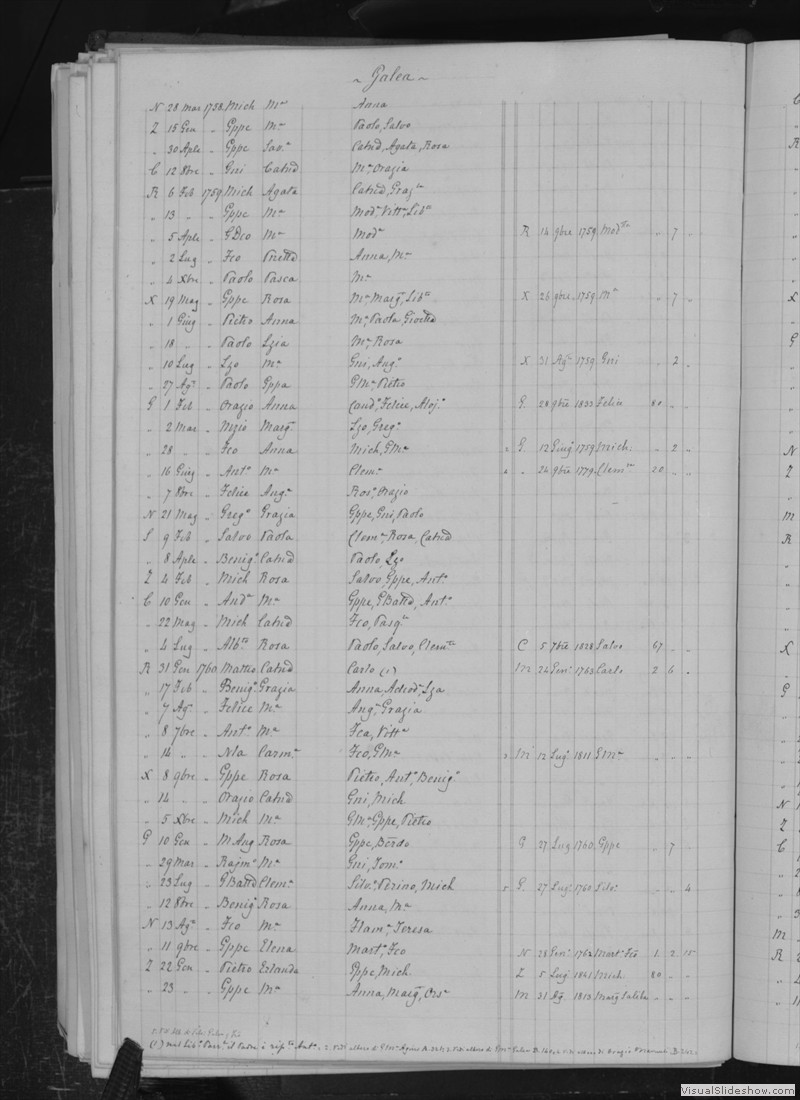 ~ Galea ~
N 28 Mar 1758 Mich Mª Anna
Z 15 Gen " Gppe Mª Paolo, Salvo
" 30 Aple " Gppe Savª Catnd, Agata, Rosa
C 12 8bre " Gni Catnd Mª, Orazia
R 6 Feb 1759 Mich Agata Catnd, Grazª
" 13 " " Gppe Mª Modª, Vittª, Libª
" 5 Aple " GDco Mª Modª R 14 9bre 1759 Modtª " 7 "
" 2 Lug " Fco Prettd Anna, Mª
" 4 Xbre " Paolo Pasca Mª
X 19 Mag " Gppe Rosa Mª, Margª, Libª X 26 9bre 1759 Mª " 7 "
" 1 Giug " Pietro Anna Mª, Paola,
" 18 " " Paolo Lzia Mª, Rosa
" 10 Lug " Lzo Mª Gni, Augº X 31 Agº 1759 Gni " 2 "
" 27 Agº " Paolo Gppa GMª, Pietro
G 1 Feb " Orazio Anna Candº, Felice, Alojº G 28 9bre 1833 Felice 80 " "
" 2 Mar " Nzio Margª Lzo, Gregº
" 28 " " Fco Anna Mich, GMª G 12 Giugº 1759 Mich " 2 "
" 16 Giug " Antº Mª Clemª " 24 9bre 1779 Clemtª 20 " "
" 7 8bre " Felice Augª Rosº, Orazio
N 21 Mag " Gregº Grazia Gppe, Gni, Paolo
S 9 Feb " Salvo Paola Clemª, Rosa, Catnd
" 8 Aple " Benigº Catnd Paolo, Lzo
Z 4 Feb " Mich Rosa Salvo, Gppe, Antº
C 10 Gen " Andª Mª Gppe, GBattd, Antº
" 22 Mag " Mich Catnd Fco, Pasqº
" 4 Lug " Albtº Rosa Paolo, Salvo, Clemtº C 5 7bre 1828 Salvo 67 " "
R 31 Gen 1760 Matteo Catnd Carlo (1) M 24 Genº 1763 Carlo 2 6 "
" 17 Feb " Benigº Grazia Anna, Lza
" 7 Agº " Felice Mª Augª, Grazia
" 8 7bre " Antº Mª Fca, Vittª
" 14 " " Nla Carmª Fco, GMª M 12 Lugº 1811 GMª " " "
X 8 9bre " Gppe Rosa Pietro, Antº, Benigº
" 14 " " Orazio Catnd Gni, Mich
" 5 Xbre " Mich Mª GMª, Gppe, Pietro
G 10 Gen " MAng Rosa Gppe, Berdo G 27 Lug 1760 Gppe " 7 "
" 29 Mar " Rajmº Mª Gni, Tomº
" 23 Lug " GBattd Clemª Silvº, Perino, Mich G 27 Lugº 1760 Silvº " " 4
" 12 8bre " Benigº Rosa Anna, Mª
N 13 Agº " Fco Mª Flamª, Teresa
" 11 9bre " Gppe Elena Martº, Fco N 28 Genº 1762 Martº Fco 1 2 15
Z 22 Gen " Pietro Erlanda Gppe, Mich Z 5 Lugº 1841 Mich 80 " "
" 23 " " Gppe Mª Anna, Margª, Orsª M 31 Agº 1813 Margª " " "
VisualSlideshow.com